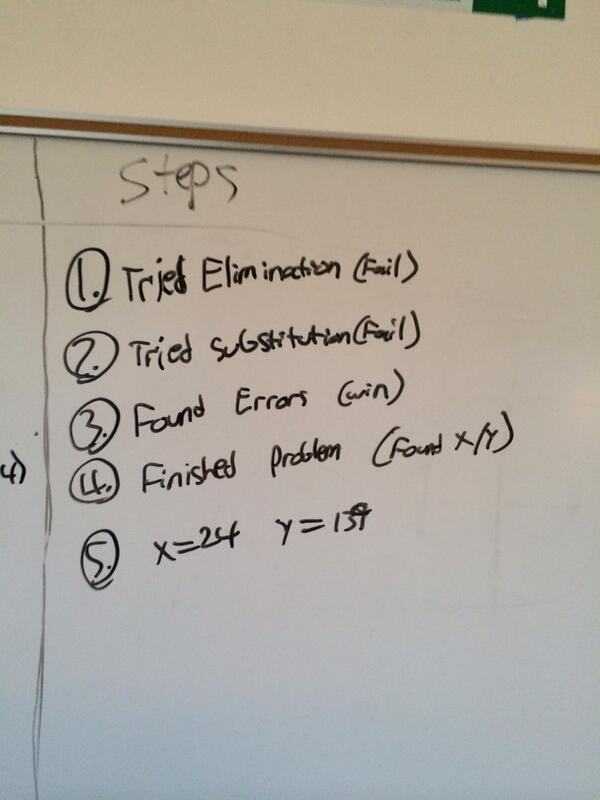 Steps
1. Tried Elimination (Fail)
2. Tried Substitution (Fail)
3. Found Errors (win)
4. Finished Problem (Found X/Y)
5. X=24 Y=